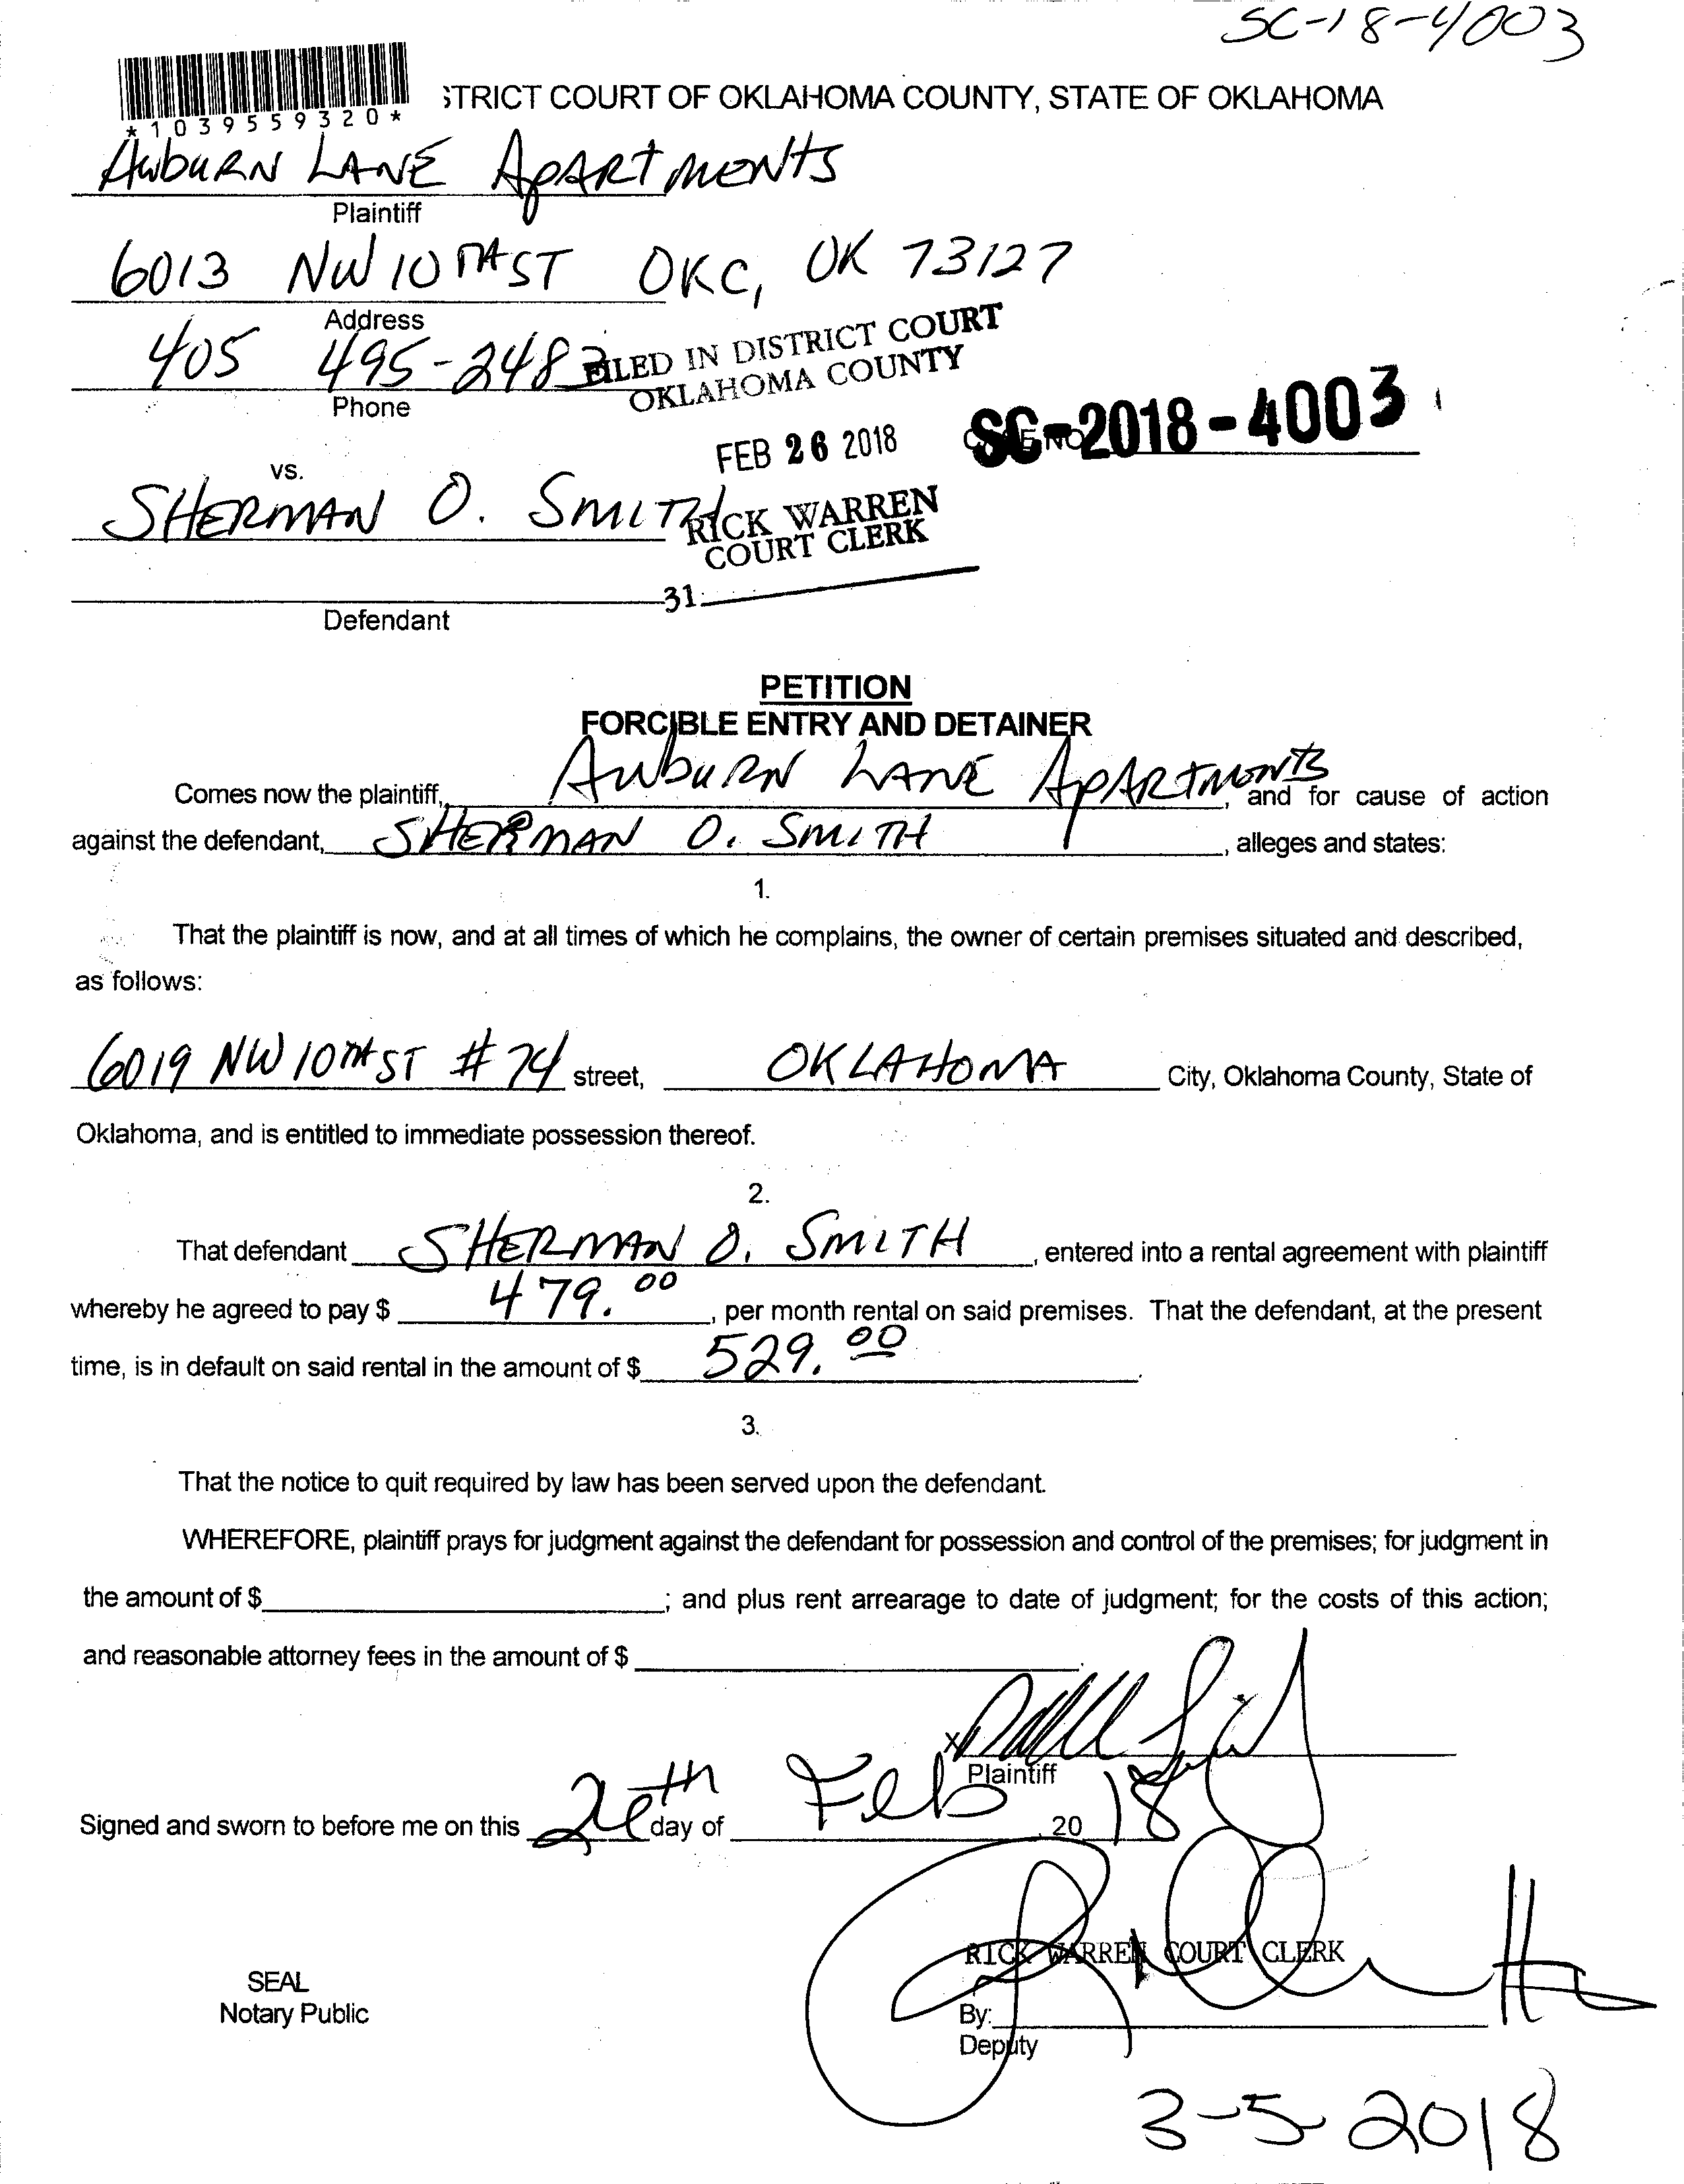 SC-18-4003
*1039559320*
STRICT COURT OF OKLAHOMA COUNTY, STATE OF OKLAHOMA
AubuRN LANE ApARTMENTS
Plaintiff
6013 NW 10TH ST OKC, OK 73127
Address
405 495-248
Phone
FILED IN DISTRICT COURT
OKLAHOMA COUNTY
FEB 26 2018
SC-2018-4003
vs.
SHERMAN O. SMITH
RICK WARREN
COURT CLERK
31
Defendant
PETITION
FORCIBLE ENTRY AND DETAINER
Comes now the plaintiff, AubuRN LANE ApARTMENTS, and for cause of action
against the defendant, SHERMAN O. SMITH, alleges and states:
1.
That the plaintiff is now, and at all times of which he complains, the owner of certain premises situated and described,
as follows:
6019 NW 10TH ST #74 street, OKLAHOMA City, Oklahoma County, State of
Oklahoma, and is entitled to immediate possession thereof.
2.
That defendant SHERMAN O. SMITH, entered into a rental agreement with plaintiff
whereby he agreed to pay $ 479.00, per month rental on said premises. That the defendant, at the present
time, is in default on said rental in the amount of $ 529.00.
3.
That the notice to quit required by law has been served upon the defendant.
WHEREFORE, plaintiff prays for judgment against the defendant for possession and control of the premises; for judgment in
the amount of $ ; and plus rent arrearage to date of judgment; for the costs of this action;
and reasonable attorney fees in the amount of $ .
X
Plaintiff
Signed and sworn to before me on this 26th day of Feb, 20 18
RICK WARREN COURT CLERK
SEAL
Notary Public
By:
Deputy
3-5-2018